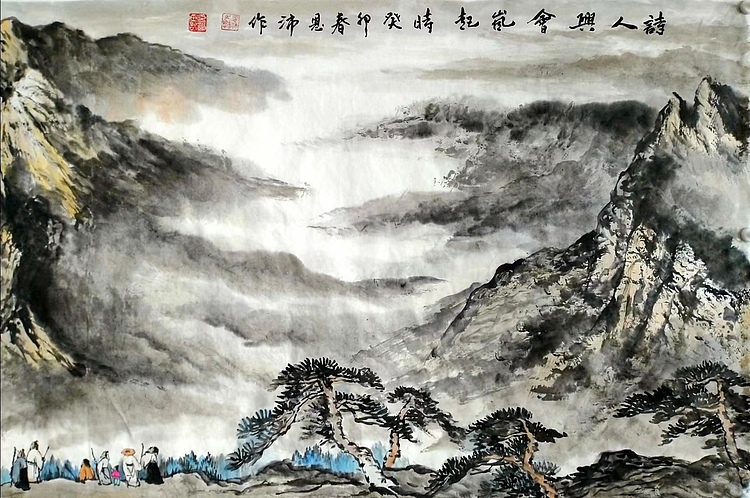 詩人興會嵐起時癸卯春恩沛作